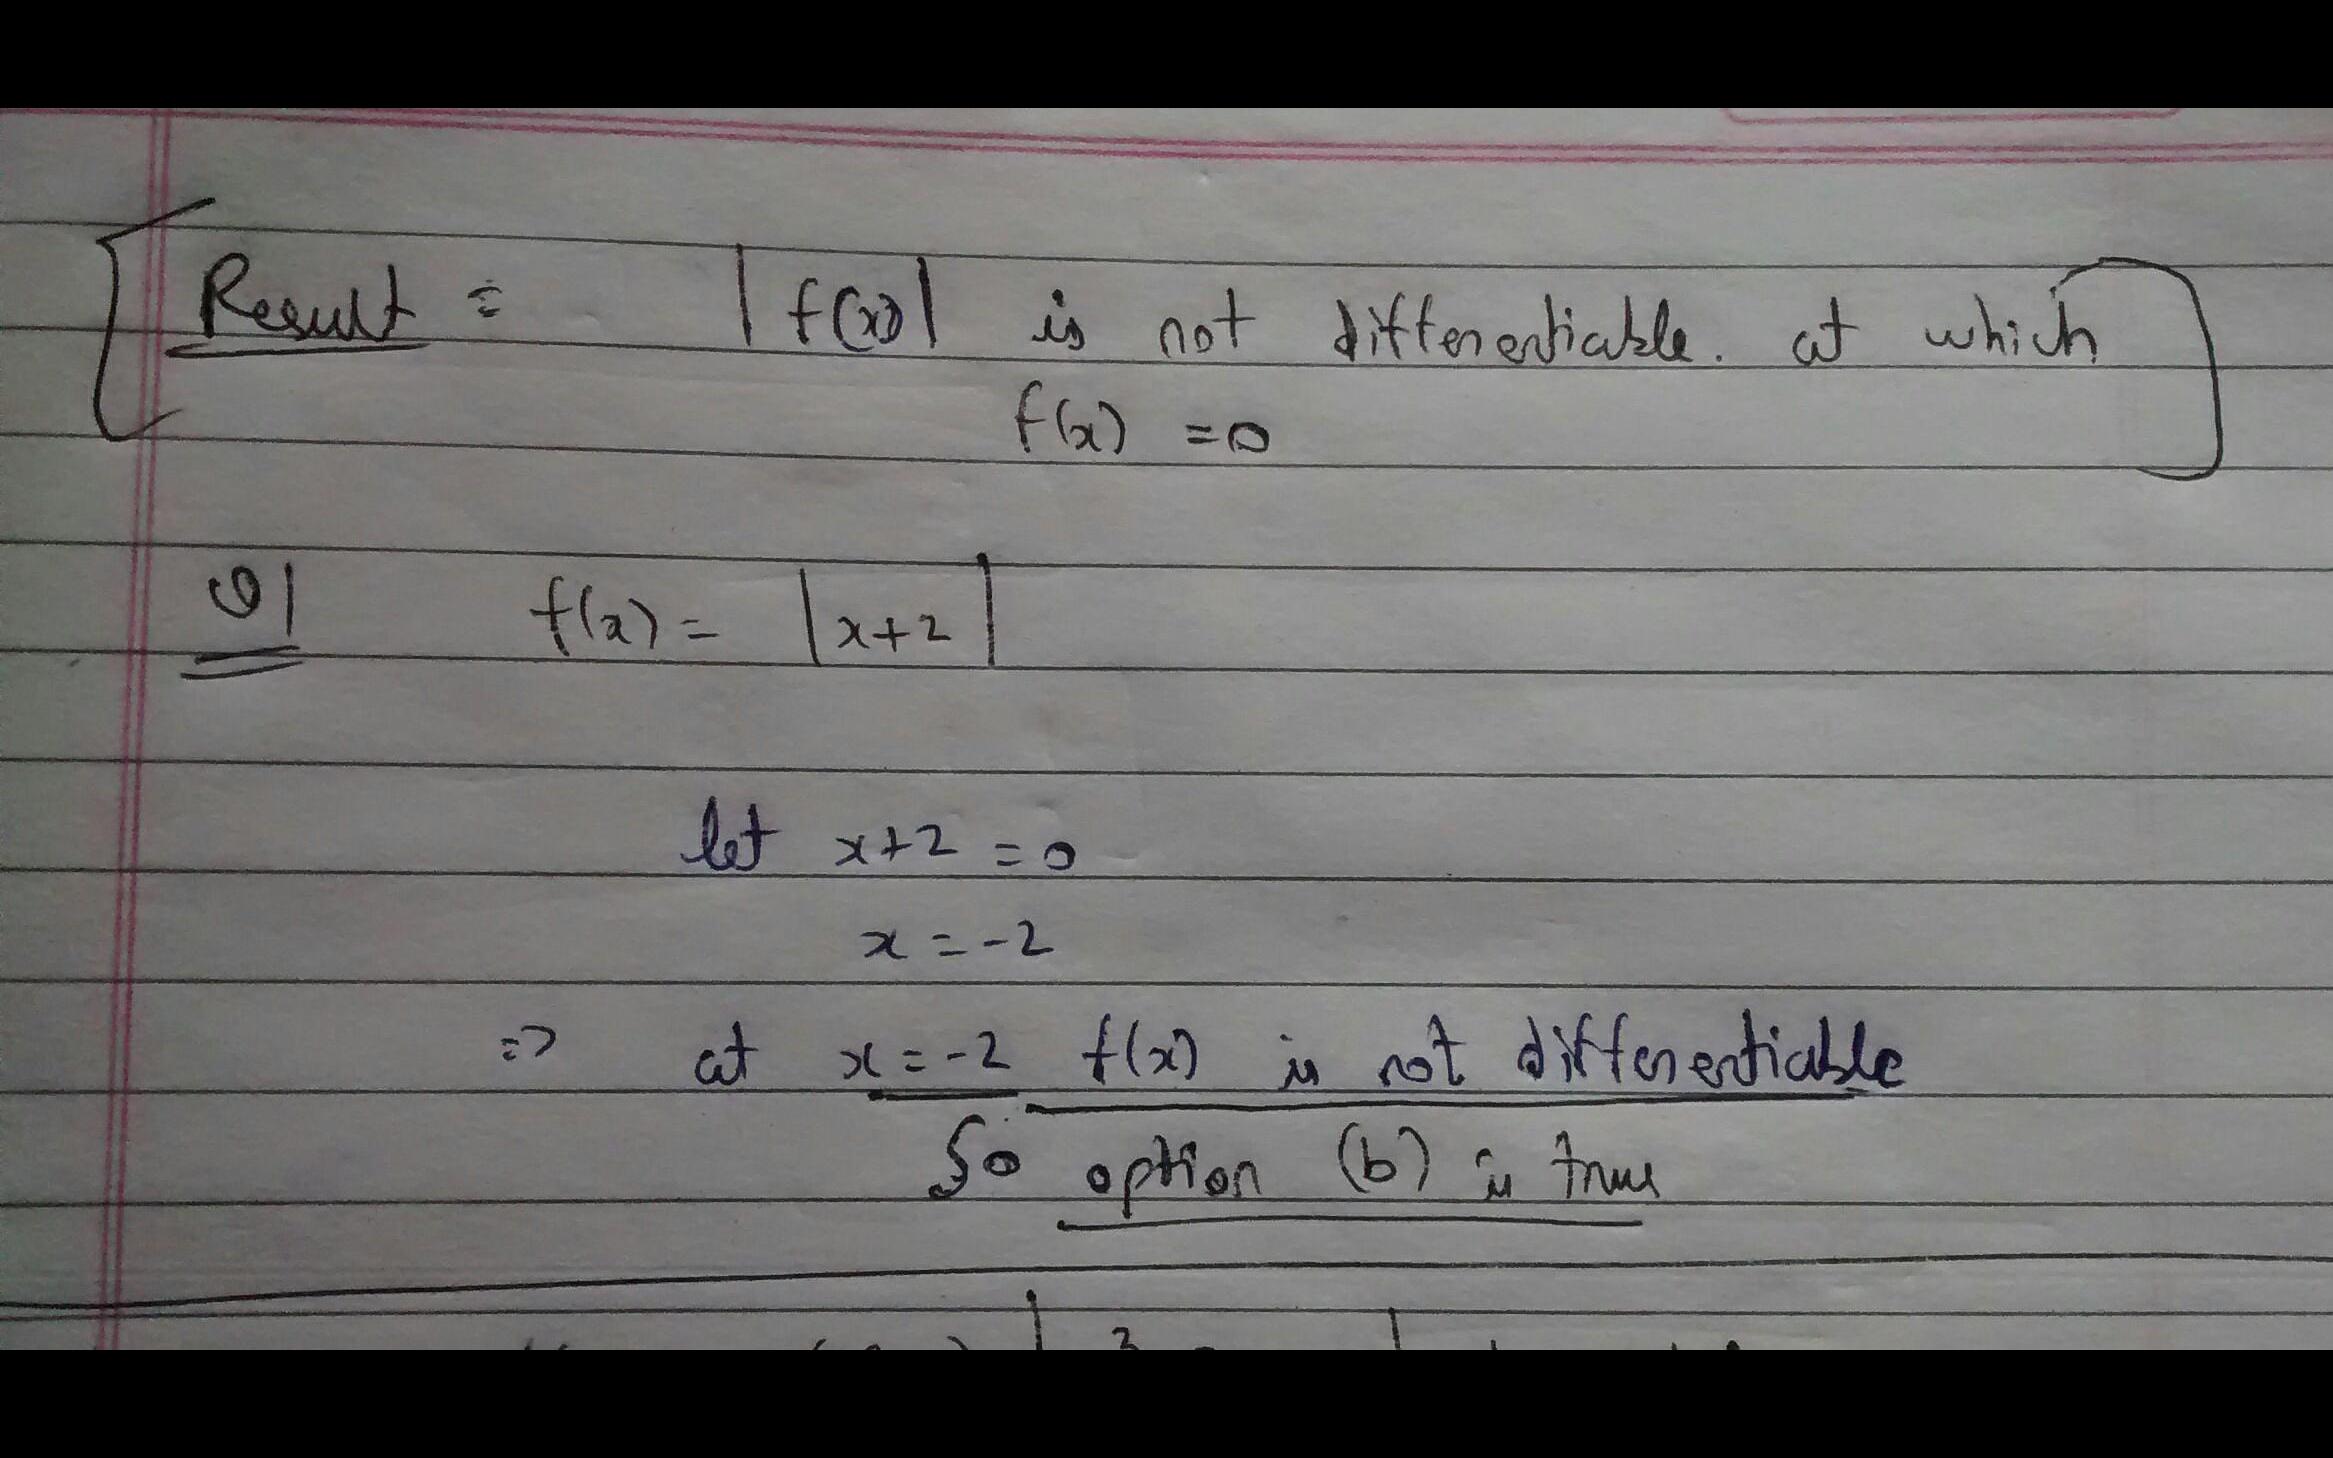 Result = |f(x)| is not differentiable. at which
f(x) = 0
Q1 f(x) = |x+2|
let x+2 = 0
x = -2
=> at x = -2 f(x) is not differentiable
So option (b) is true